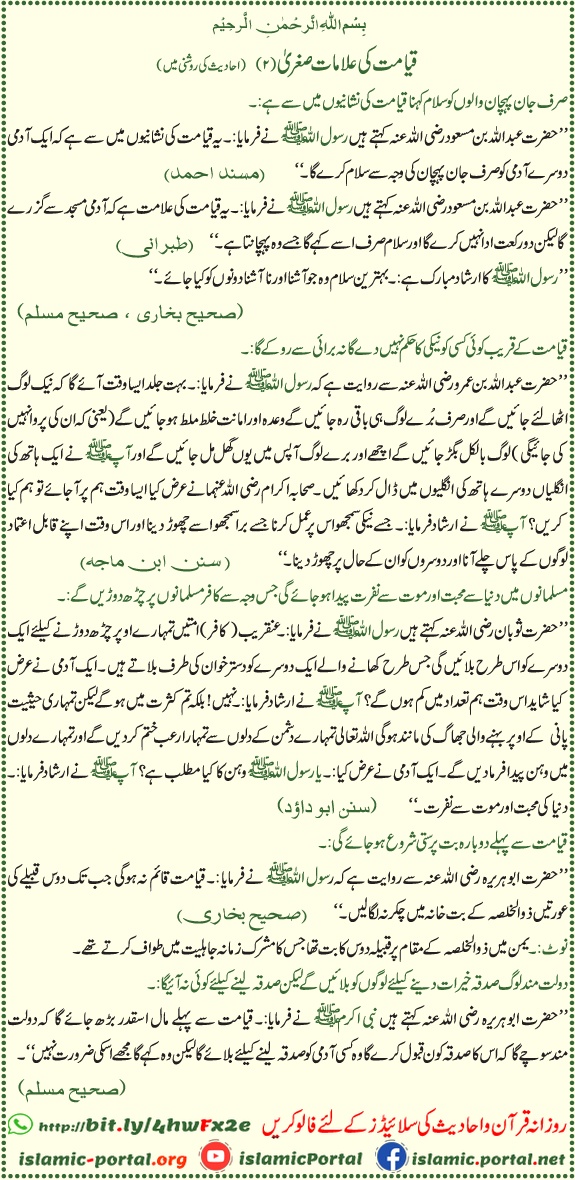 بِسْمِ اللهِ الرَّحْمٰنِ الرَّحِيْمِ
قیامت کی علامات صغریٰ (۲) (احادیث کی روشنی میں)
صرف جان پہچان والوں کو سلام کہنا قیامت کی نشانیوں میں سے ہے:۔
’’حضرت عبداللہ بن مسعود رضی اللہ عنہ کہتے ہیں رسول اللہ ﷺ نے فرمایا:۔ یہ قیامت کی نشانیوں میں سے ہے کہ ایک آدمی
دوسرے آدمی کو صرف جان پہچان کی وجہ سے سلام کرے گا۔‘‘ (مسند احمد)
’’حضرت عبداللہ بن مسعود رضی اللہ عنہ کہتے ہیں رسول اللہ ﷺ نے فرمایا:۔ یہ قیامت کی علامت ہے کہ آدمی مسجد سے گزرے
گا لیکن دو رکعت ادا نہیں کرے گا اور سلام صرف اسے کہے گا جسے وہ پہچانتا ہے۔‘‘ (طبرانی)
’’رسول اللہ ﷺ کا ارشاد مبارک ہے:۔ بہترین سلام وہ جو آشنا اور نا آشنا دونوں کو کیا جائے۔‘‘
(صحیح بخاری ، صحیح مسلم)
قیامت کے قریب کوئی کسی کو نیکی کا حکم نہیں دے گا نہ برائی سے روکے گا:۔
’’حضرت عبداللہ بن عمرو رضی اللہ عنہ سے روایت ہے کہ رسول اللہ ﷺ نے فرمایا:۔ بہت جلد ایسا وقت آئے گا کہ نیک لوگ
اٹھا لئے جائیں گے اور صرف بُرے لوگ ہی باقی رہ جائیں گے وعدہ اور امانت خلط ملط ہو جائیں گے (یعنی کہ ان کی پروا نہیں
کی جائیگی) لوگ بالکل بگڑ جائیں گے اچھے اور برے لوگ آپس میں یوں گھل مل جائیں گے اور آپ ﷺ نے ایک ہاتھ کی
انگلیاں دوسرے ہاتھ کی انگلیوں میں ڈال کر دکھائیں۔ صحابہ اکرام رضی اللہ عنہما نے عرض کیا ایسا وقت ہم پر آ جائے تو ہم کیا
کریں؟ آپ ﷺ نے ارشاد فرمایا:۔ جسے نیکی سمجھو اس پر عمل کرنا جسے برا سمجھو اسے چھوڑ دینا اور اس وقت اپنے قابل اعتماد
لوگوں کے پاس چلے آنا اور دوسروں کو ان کے حال پر چھوڑ دینا۔‘‘ (سنن ابن ماجہ)
مسلمانوں میں دنیا سے محبت اور موت سے نفرت پیدا ہو جائے گی جس وجہ سے کافر مسلمانوں پر چڑھ دوڑیں گے:۔
’’حضرت ثوبان رضی اللہ عنہ کہتے ہیں رسول اللہ ﷺ نے فرمایا:۔ عنقریب (کافر) امتیں تمہارے اوپر چڑھ دوڑنے کیلئے ایک
دوسرے کو اس طرح بلائیں گی جس طرح کھانے والے ایک دوسرے کو دستر خوان کی طرف بلاتے ہیں۔ ایک آدمی نے عرض
کیا شاید اس وقت ہم تعداد میں کم ہوں گے؟ آپ ﷺ نے ارشاد فرمایا:۔ نہیں! بلکہ تم کثرت میں ہو گے لیکن تمہاری حیثیت
پانی کے اوپر بہنے والی جھاگ کی مانند ہو گی اللہ تعالی تمہارے دشمن کے دلوں سے تمہارا رعب ختم کر دیں گے اور تمہارے دلوں
میں وہن پیدا فرما دیں گے۔ ایک آدمی نے عرض کیا:۔ یا رسول اللہ ﷺ وہن کا کیا مطلب ہے؟ آپ ﷺ نے ارشاد فرمایا:۔
دنیا کی محبت اور موت سے نفرت۔‘‘ (سنن ابو داؤد)
قیامت سے پہلے دوبارہ بت پرستی شروع ہو جائے گی:۔
’’حضرت ابو ہریرہ رضی اللہ عنہ سے روایت ہے کہ رسول اللہ ﷺ نے فرمایا:۔ قیامت قائم نہ ہو گی جب تک دوس قبیلے کی
عورتیں ذوالخلصہ کے بت خانہ میں چکر نہ لگا لیں۔‘‘ (صحیح بخاری)
نوٹ:۔ یمن میں ذوالخلصہ کے مقام پر قبیلہ دوس کا بت تھا جس کا مشرک زمانہ جاہلیت میں طواف کرتے تھے۔
دولت مند لوگ صدقہ خیرات دینے کیلئے لوگوں کو بلائیں گے لیکن صدقہ لینے کیلئے کوئی نہ آئیگا:۔
’’حضرت ابو ہریرہ رضی اللہ عنہ کہتے ہیں نبی اکرم ﷺ نے فرمایا:۔ قیامت سے پہلے مال اسقدر بڑھ جائے گا کہ دولت
مند سوچے گا کہ اس کا صدقہ کون قبول کرے گا وہ کسی آدمی کو صدقہ لینے کیلئے بلائے گا لیکن وہ کہے گا مجھے اسکی ضرورت نہیں‘‘۔
(صحیح مسلم)
روزانہ قرآن و احادیث کی سلائیڈز کے لئے فالو کریں http://bit.ly/4hwFx2e
islamic-portal.org islamicPortal islamic.portal.net